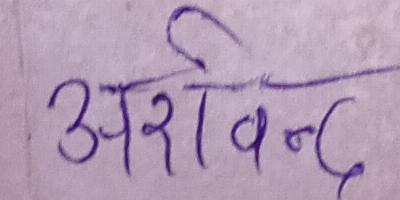 अरविन्द